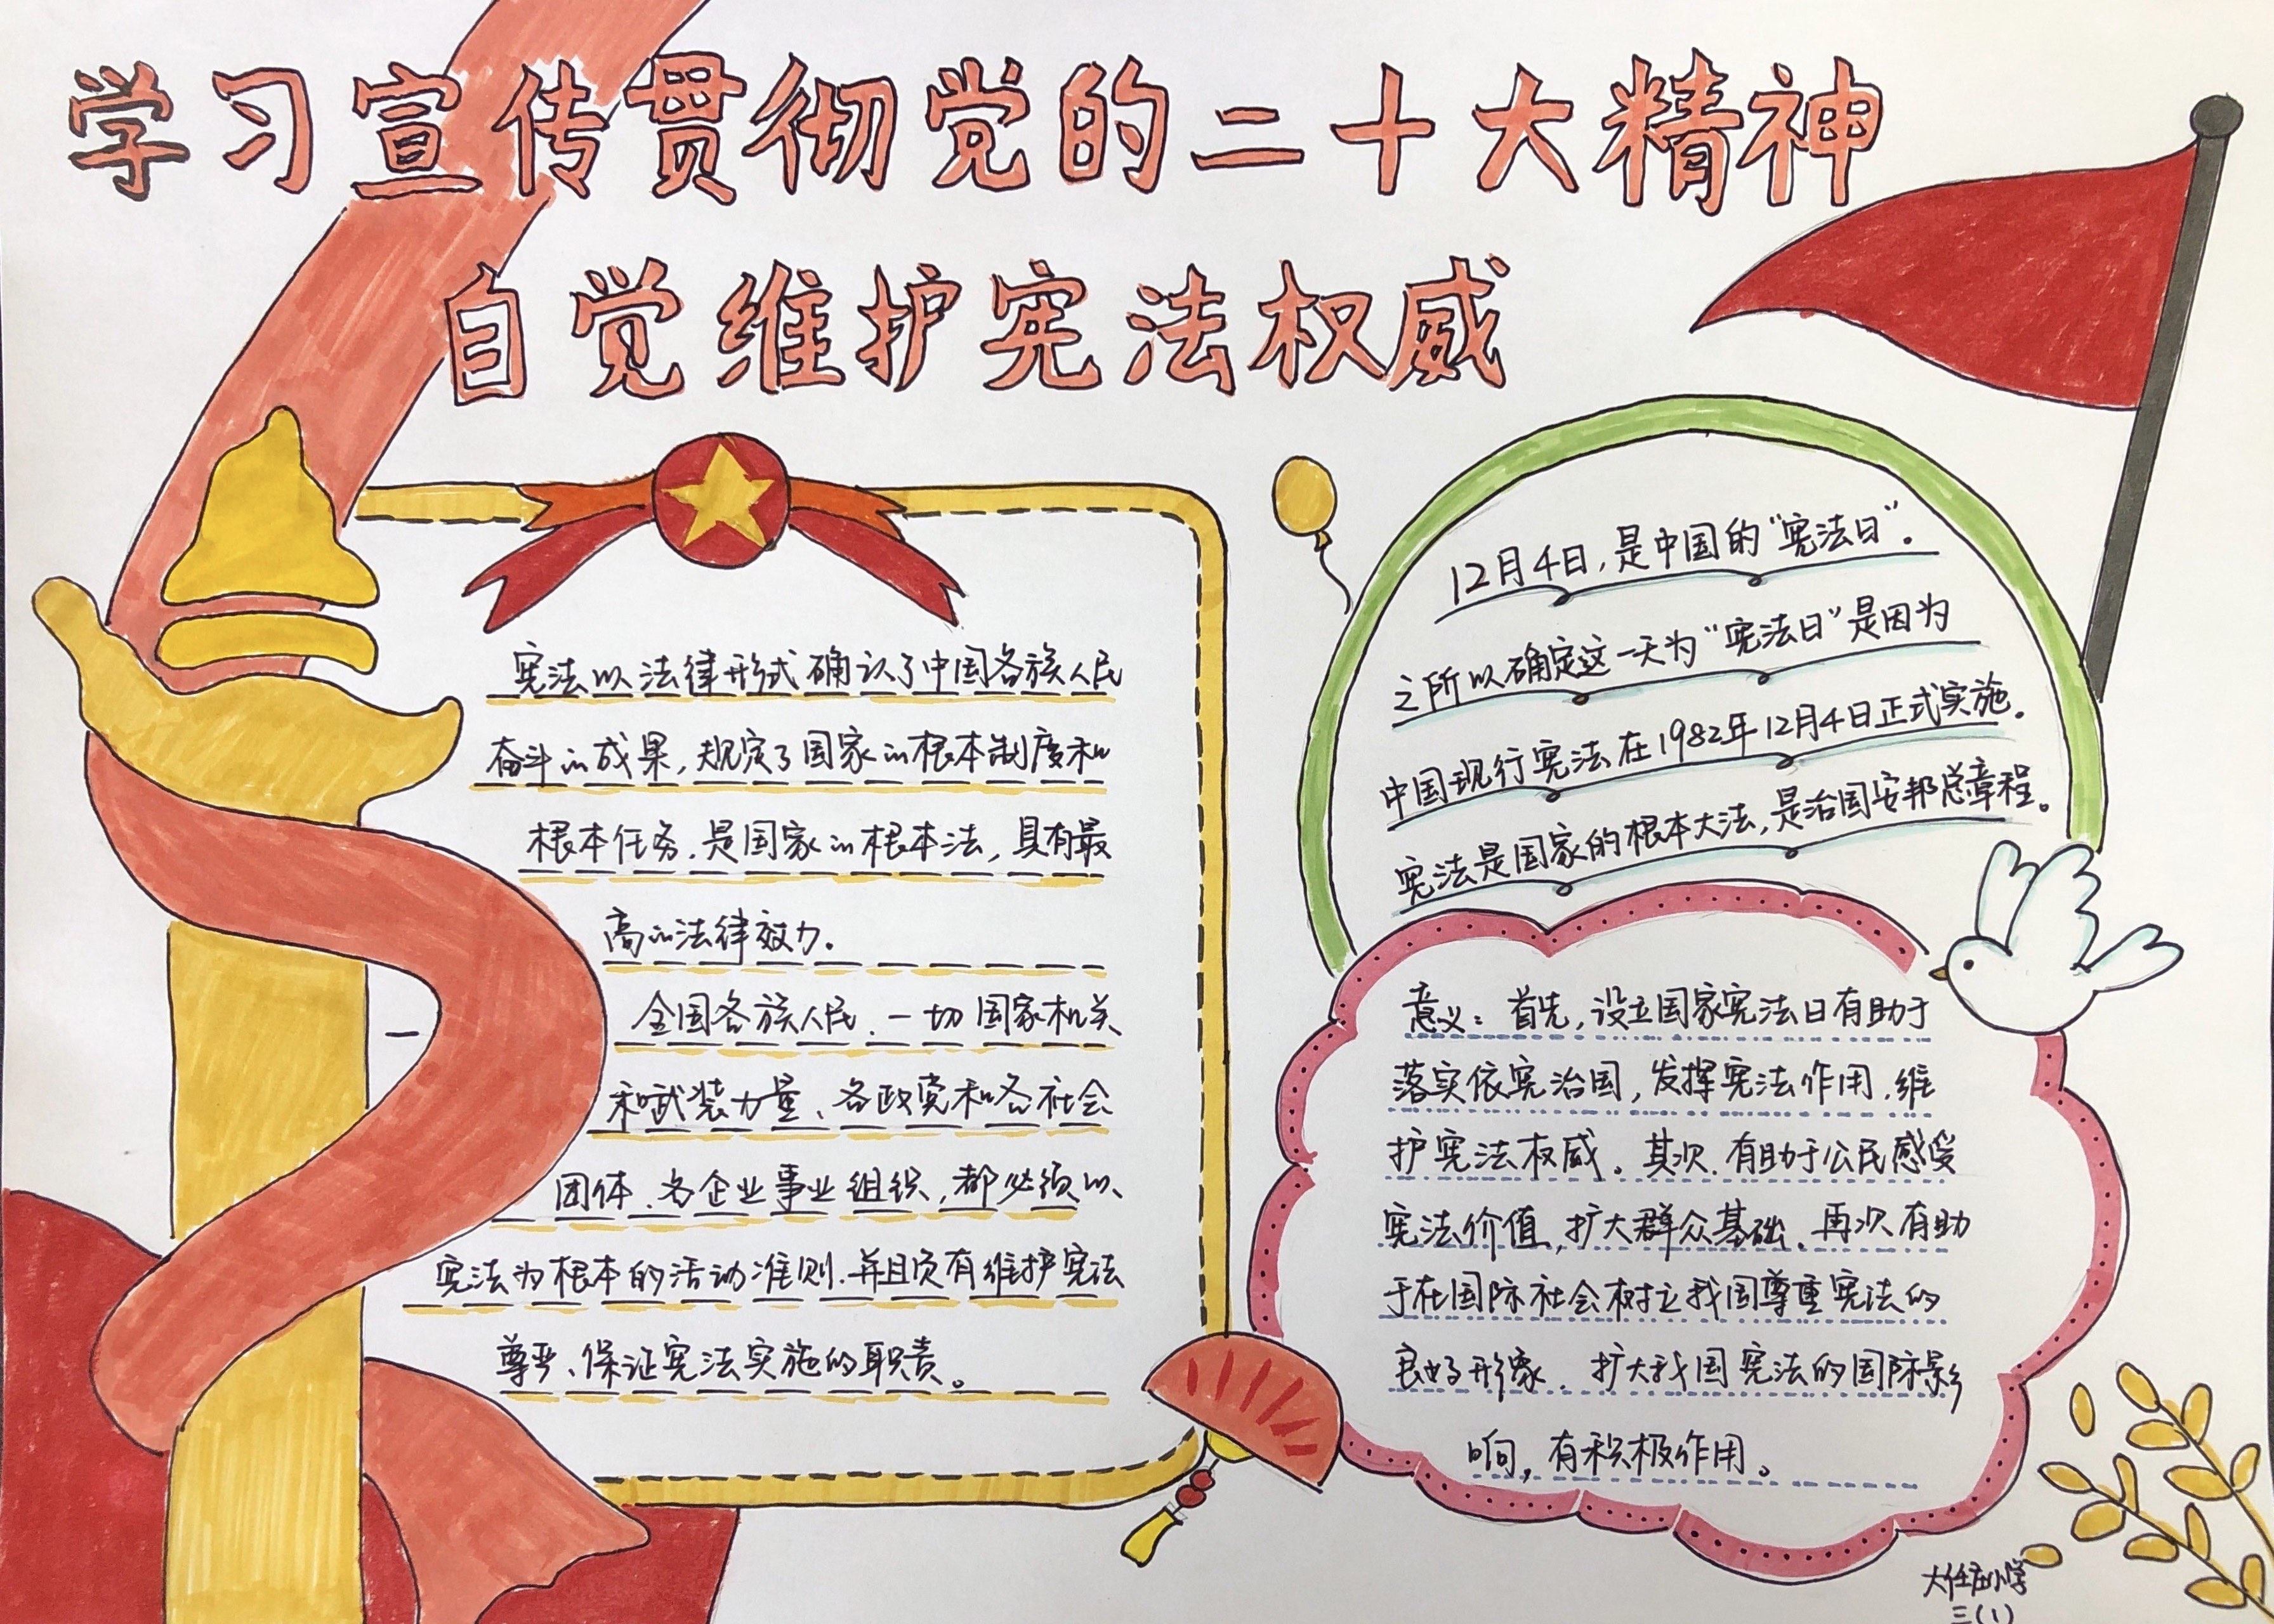 学习宣传贯彻党的二十大精神
自觉维护宪法权威
宪法以法律形式确认了中国各族人民
奋斗的成果,规定了国家的根本制度和
根本任务,是国家的根本法,具有最
高的法律效力.
全国各族人民、一切国家机关
和武装力量、各政党和各社会
团体、各企业事业组织,都必须以
宪法为根本的活动准则.并且负有维护宪法
尊严、保证宪法实施的职责。
12月4日,是中国的“宪法日”.
之所以确定这一天为“宪法日”是因为
中国现行宪法在1982年12月4日正式实施.
宪法是国家的根本大法,是治国安邦总章程。
意义:首先,设立国家宪法日有助于
落实依宪治国,发挥宪法作用,维
护宪法权威。其次.有助于公民感受
宪法价值,扩大群众基础.再次有助
于在国际社会树立我国尊重宪法的
良好形象.扩大我国宪法的国际影
响,有积极作用。
大任庄小学
三(1)